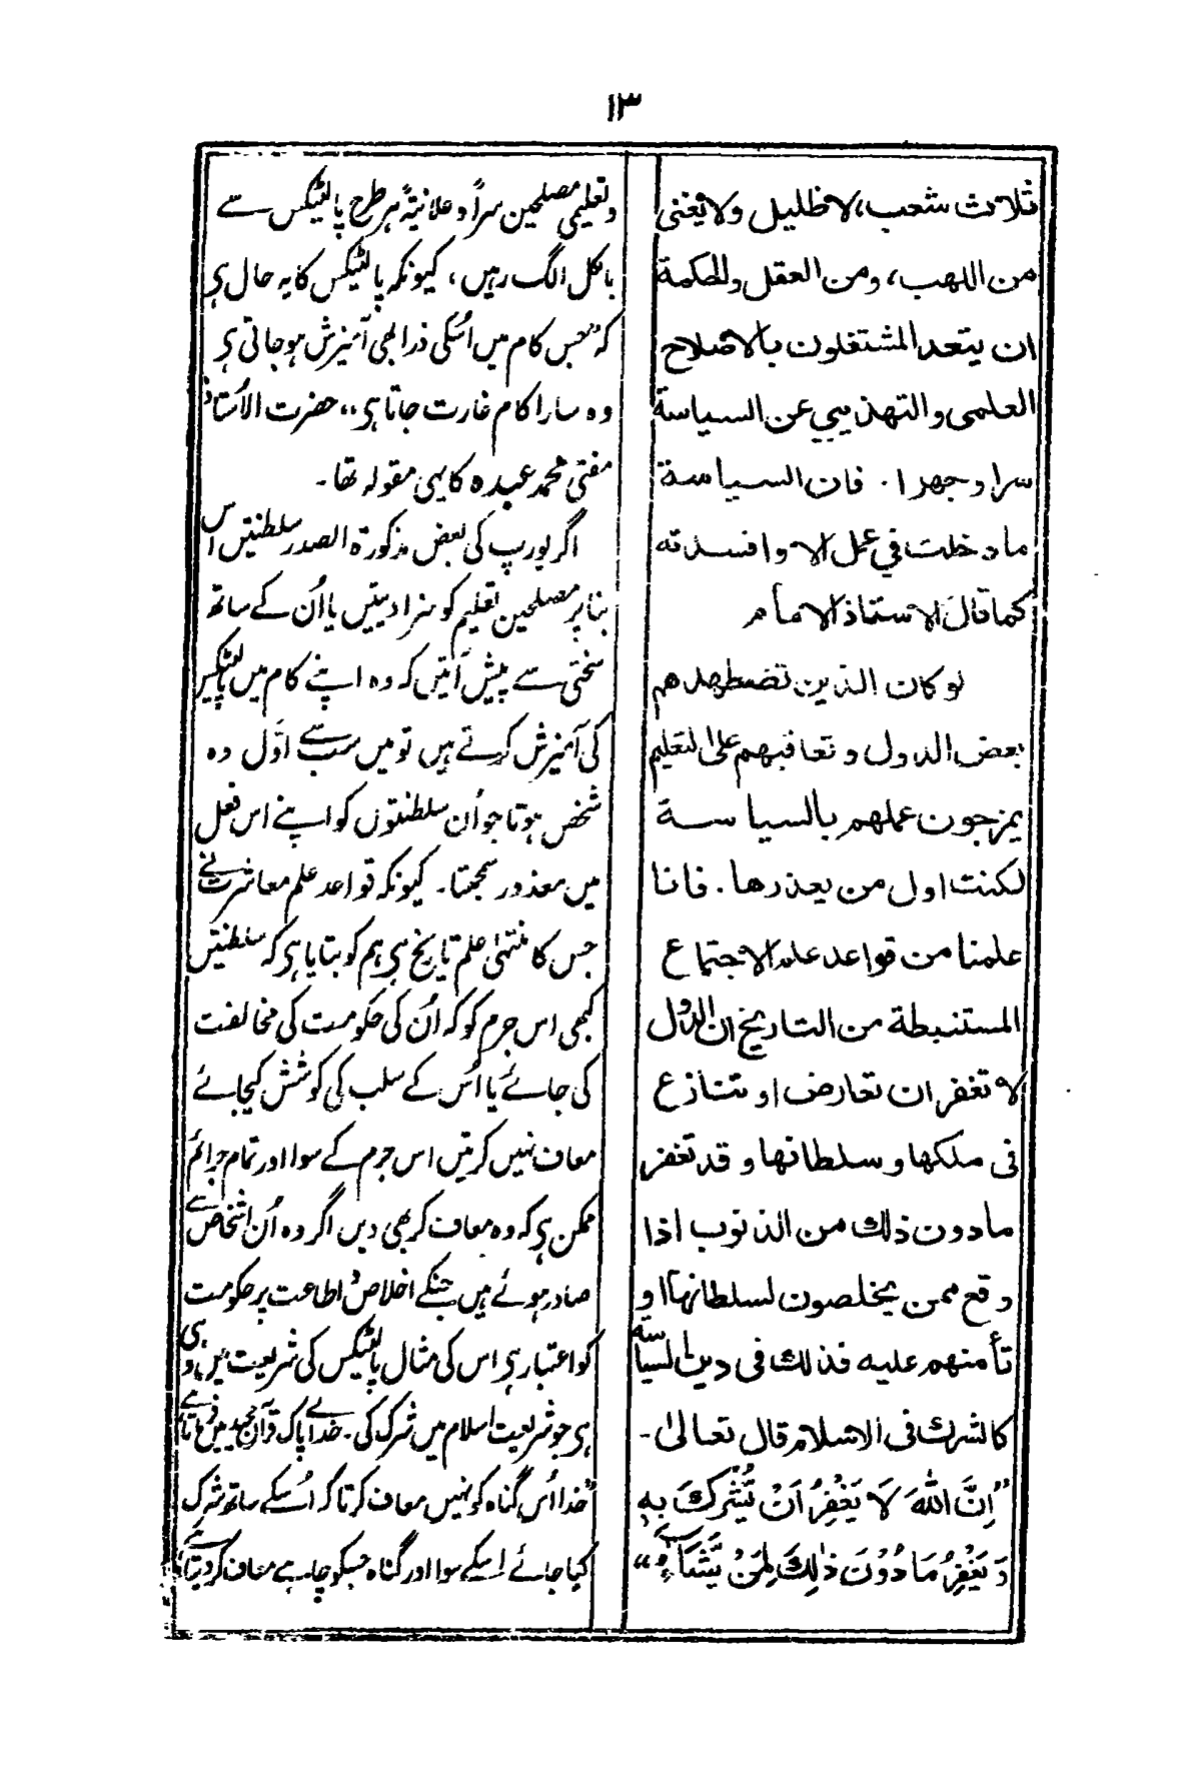 ۱۳
ثلاث شعب، لا ظليل ولا يغنى
من اللهب، ومن العقل والحكمة
ان يتعد المشتغلون بالاصلاح
العلمى والتهذيبي عن السياسة
سرا وجهرا. فان السياسة
مادخلت في عمل الا وافسدته
كما قال الاستاذ الامام
لو كان الذين تضطهدهم
بعض الدول وتعاقبهم على التعليم
يمزجون عملهم بالسياسة
لكنت اول من يعذرها. فانا
علمنا من قواعد علم الاجتماع
المستنبطة من التاريخ ان الدول
لا تغفر ان تعارض او تنازع
فى ملكها وسلطانها وقد تغفر
مادون ذلك من الذنوب اذا
وقع ممن يخلصون لسلطانها او
تأمنهم عليه فذلك فى دين السياسة
كالشرك فى الاسلام قال تعالىٰ-
"اِنَّ اللّٰهَ لَا يَغْفِرُ اَنْ يُّشْرَكَ بِهٖ
وَيَغْفِرُ مَادُوْنَ ذٰلِكَ لِمَنْ يَّشَآءُ"
وتعلیمی مصلحین سراً وعلانیۃً ہر طرح پالٹیکس سے
بالکل الگ رہیں، کیونکہ پالٹیکس کا یہ حال ہی
کہ "جس کام میں اُسکی ذرا بھی آمیزش ہو جاتی ہی
وہ سارا کام غارت جاتا ہی،، حضرت الاُستاذ
مفتی محمد عبدہ کا یہی مقولہ تھا۔
اگر یورپ کی بعض مذکورۃ الصدر سلطنتیں اس
بنا پر مصلحین تعلیم کو سزا دیتیں یا اُن کے ساتھ
سختی سے پیش آتیں کہ وہ اپنے کام میں پالٹیکس
کی آمیزش کرتے ہیں تو میں سب سے اوّل وہ
شخص ہوتا جو اُن سلطنتوں کو اپنے اس فعل
میں معذور سمجھتا۔ کیونکہ قواعد علم معاشرت نے
جس کا منتہیٰ علم تاریخ ہی ہم کو بتایا ہی کہ سلطنتیں
کبھی اس جرم کو کہ اُن کی حکومت کی مخالفت
کی جائے یا اُس کے سلب کی کوشش کیجائے
معاف نہیں کرتیں اس جرم کے سوا اور تمام جرائم
ممکن ہی کہ وہ معاف کر بھی دیں اگر وہ اُن اشخاص سے
صادر ہوئے ہیں جنکے اخلاص و اطاعت پر حکومت
کو اعتبار ہی اس کی مثال پالٹیکس کی شریعت میں وہی
ہی جو شریعت اسلام میں شرک کی۔ خدائے پاک قرآن مجید میں فرماتا ہے
"خدا اُس گناہ کو نہیں معاف کرتا کہ اُسکے ساتھ شرک
کیا جائے اسکے سوا اور گناہ جسکو چاہے معاف کر دیتا ہے